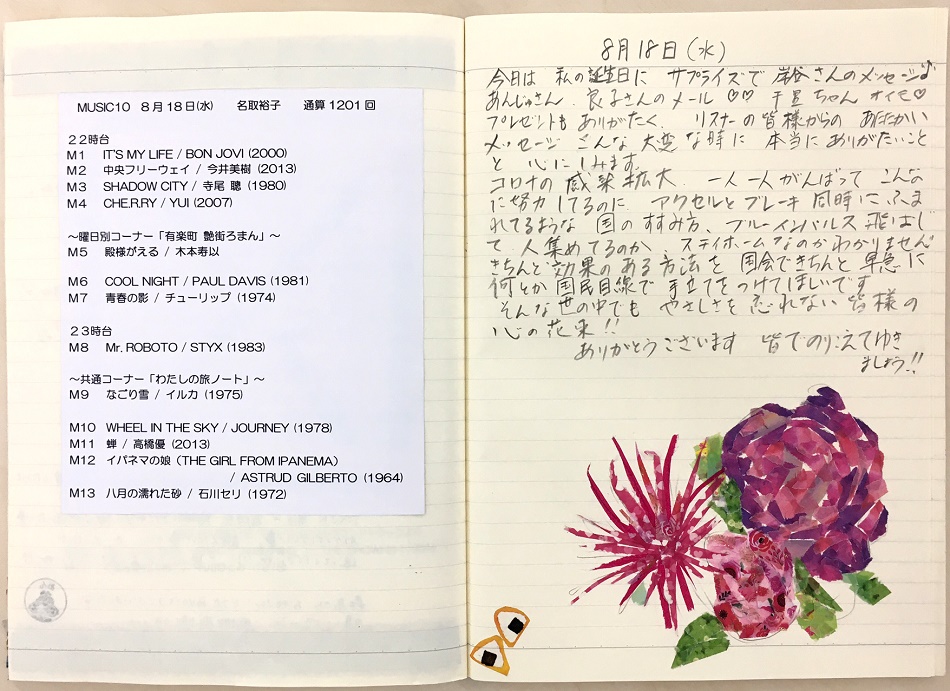 MUSIC10 8月18日(水) 名取裕子 通算1201回
22時台
M1 IT'S MY LIFE / BON JOVI (2000)
M2 中央フリーウェイ / 今井美樹 (2013)
M3 SHADOW CITY / 寺尾 聰 (1980)
M4 CHE.R.RY / YUI (2007)
～曜日別コーナー「有楽町 艶街ろまん」～
M5 殿様がえる / 木本寿以
M6 COOL NIGHT / PAUL DAVIS (1981)
M7 青春の影 / チューリップ (1974)
23時台
M8 Mr. ROBOTO / STYX (1983)
～共通コーナー「わたしの旅ノート」～
M9 なごり雪 / イルカ (1975)
M10 WHEEL IN THE SKY / JOURNEY (1978)
M11 蝉 / 高橋優 (2013)
M12 イパネマの娘（THE GIRL FROM IPANEMA）
/ ASTRUD GILBERTO (1964)
M13 八月の濡れた砂 / 石川セリ (1972)
8月18日(水)
今日は 私の誕生日に サプライズで 岸谷さんのメッセージ♪
あんじゅさん、良子さんのメール♡♡ 千里ちゃん オイモ♡
プレゼントも ありがたく、リスナーの皆様からの あたたかい
メッセージ こんな大変な時に 本当に ありがたいこと
と 心にしみます。
コロナの 感染拡大、一人一人がんばって こんな
に努力してるのに、アクセルとブレーキ同時にふま
れてるような 国のすすみ方、ブルーインパルス飛ばし
て、人集めてるのか、ステイホームなのかわかりません
きちんと効果のある方法を 国会できちんと 早急に
何とか国民目線で 手立てをつけてほしいです
そんな世の中でも やさしさを忘れない 皆様の
心の花束!!
ありがとうございます 皆でのりこえてゆき
ましょう!!